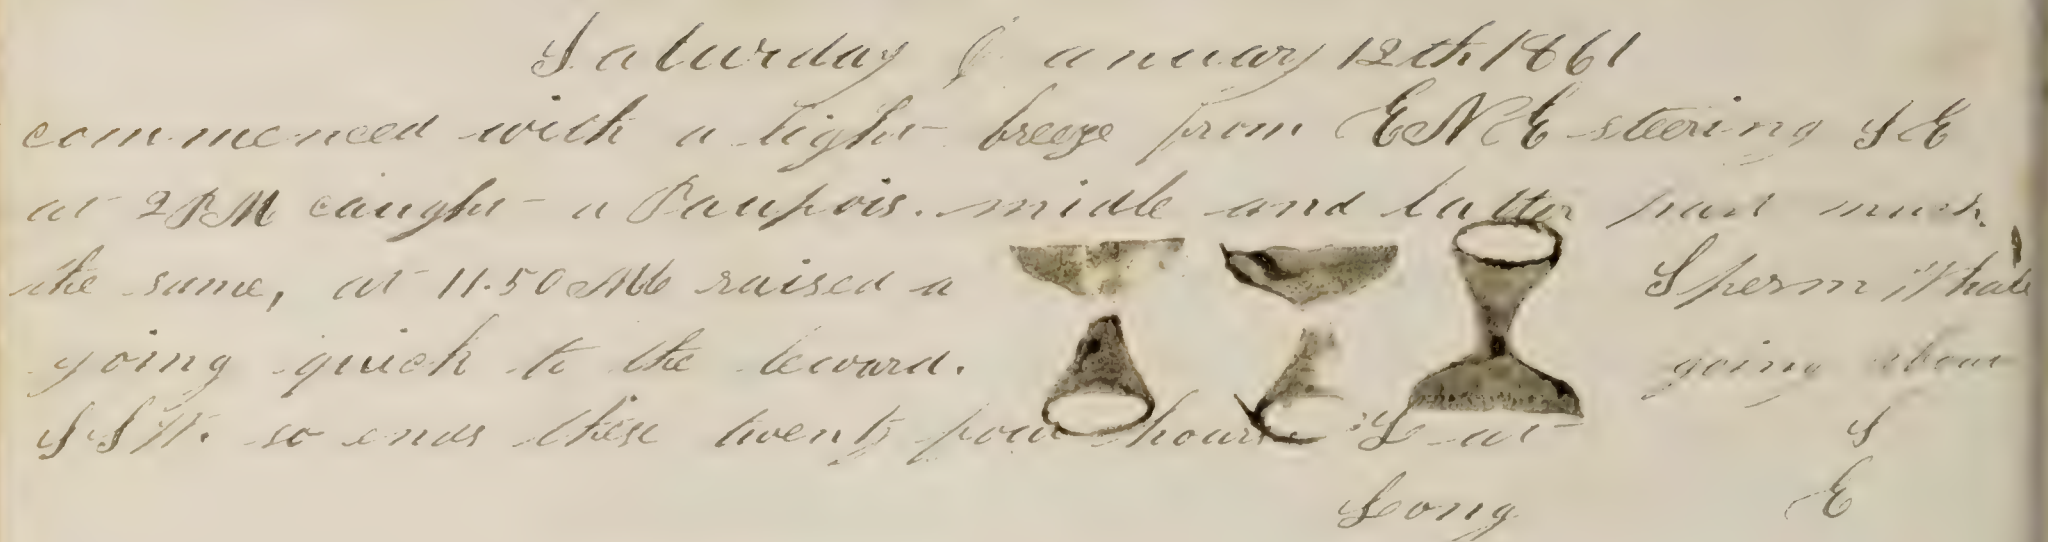 Saturday January 12th 1861
commenced with a light breeze from ENE steering SE
at 2 PM caught a Paupois. midle and latter part much
the same, at 11.50 AM raised a Sperm Whale
going quick to the leward. going about
SSW. so ends these twenty four hours Lat S
Long E